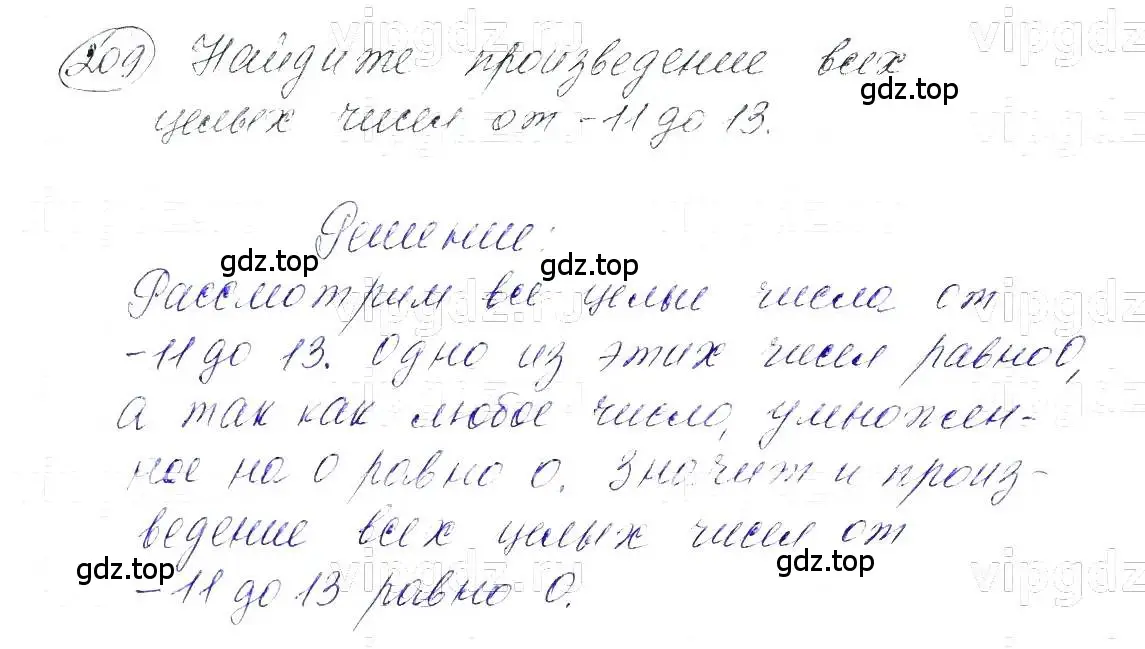 209 Найдите произведение всех
целых чисел от -11 до 13.
Решение:
Рассмотрим все целые числа от
-11 до 13. Одно из этих чисел равно 0,
а так как любое число, умножен-
ное на 0 равно 0. Значит и произ-
ведение всех целых чисел от
-11 до 13 равно 0.
gdz.top
gdz.top
gdz.top
gdz.top
gdz.top
vipgdz.ru
vipgdz.ru
vipgdz.ru
vipgdz.ru
vipgdz.ru